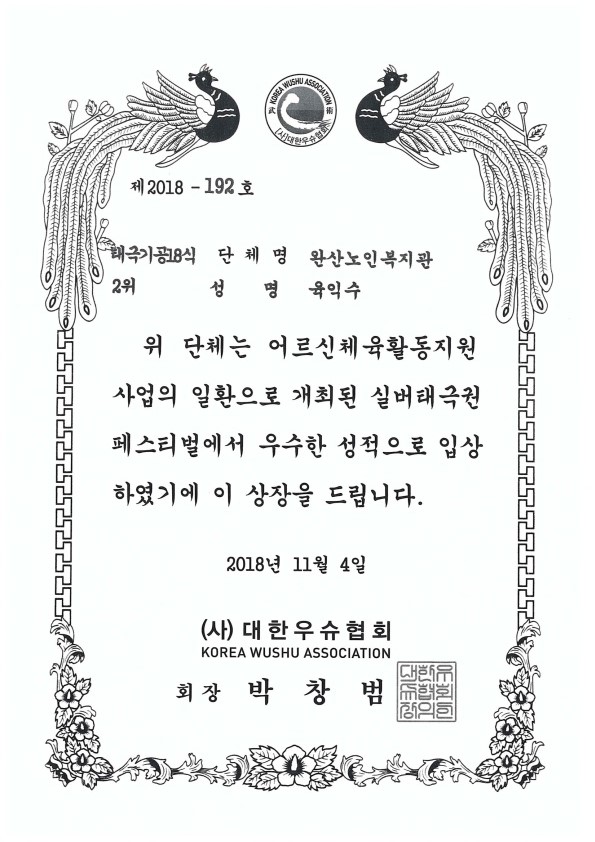 KOREA WUSHU ASSOCIATION
(사)대한우슈협회
제2018 - 192 호
태극기공18식 단 체 명 완산노인복지관
2위 성 명 육익수
위 단체는 어르신체육활동지원
사업의 일환으로 개최된 실버태극권
페스티벌에서 우수한 성적으로 입상
하였기에 이 상장을 드립니다.
2018년 11월 4일
(사) 대한우슈협회
KOREA WUSHU ASSOCIATION
회장 박 창 범